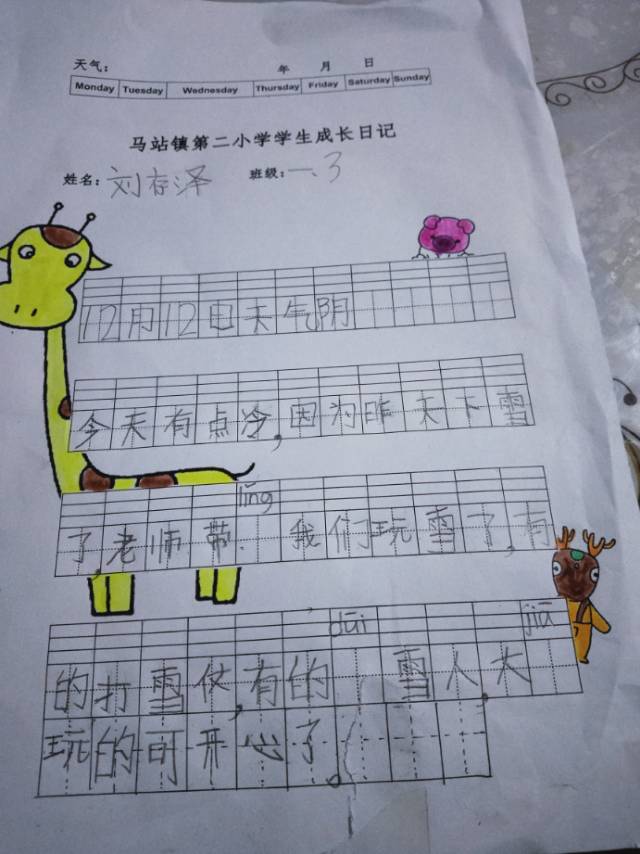 天气： 年 月 日
Monday Tuesday Wednesday Thursday Friday Saturday Sunday
马站镇第二小学学生成长日记
姓名：刘存泽 班级：一.3
12月12日天气阴
今天有点冷,因为昨天下雪
了,老师带lǐng我们玩雪了,有
的打雪仗,有的duī雪人,大jiā
玩的可开心了。